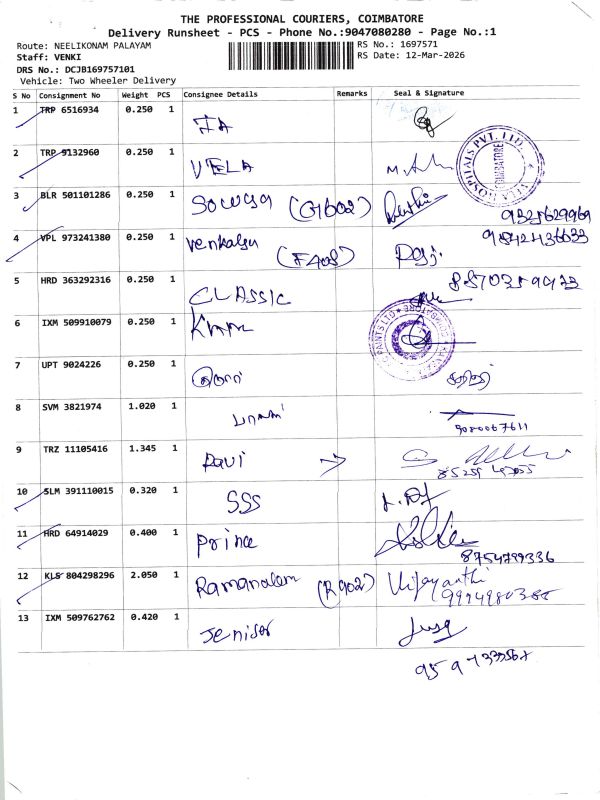 THE PROFESSIONAL COURIERS, COIMBATORE
Delivery Runsheet - PCS - Phone No.:9047080280 - Page No.:1
Route: NEELIKONAM PALAYAM RS No.: 1697571
Staff: VENKI RS Date: 12-Mar-2026
DRS No.: DCJB169757101
Vehicle: Two Wheeler Delivery
S No Consignment No Weight PCS Consignee Details Remarks Seal & Signature
1 TRP 6516934 0.250 1 IA
2 TRP 9132960 0.250 1 VELA
3 BLR 501101286 0.250 1 (G1602)
4 VPL 973241380 0.250 1 (F408)
5 HRD 363292316 0.250 1 CLASSIC
6 IXM 509910079 0.250 1
7 UPT 9024226 0.250 1
8 SVM 3821974 1.020 1 9080067611
9 TRZ 11105416 1.345 1 Ravi
10 SLM 391110015 0.320 1 SSS
11 HRD 64914029 0.400 1 Prince 8754799336
12 KLS 804298296 2.050 1 (R902) Vijayanthi
13 IXM 509762762 0.420 1 Jenisor